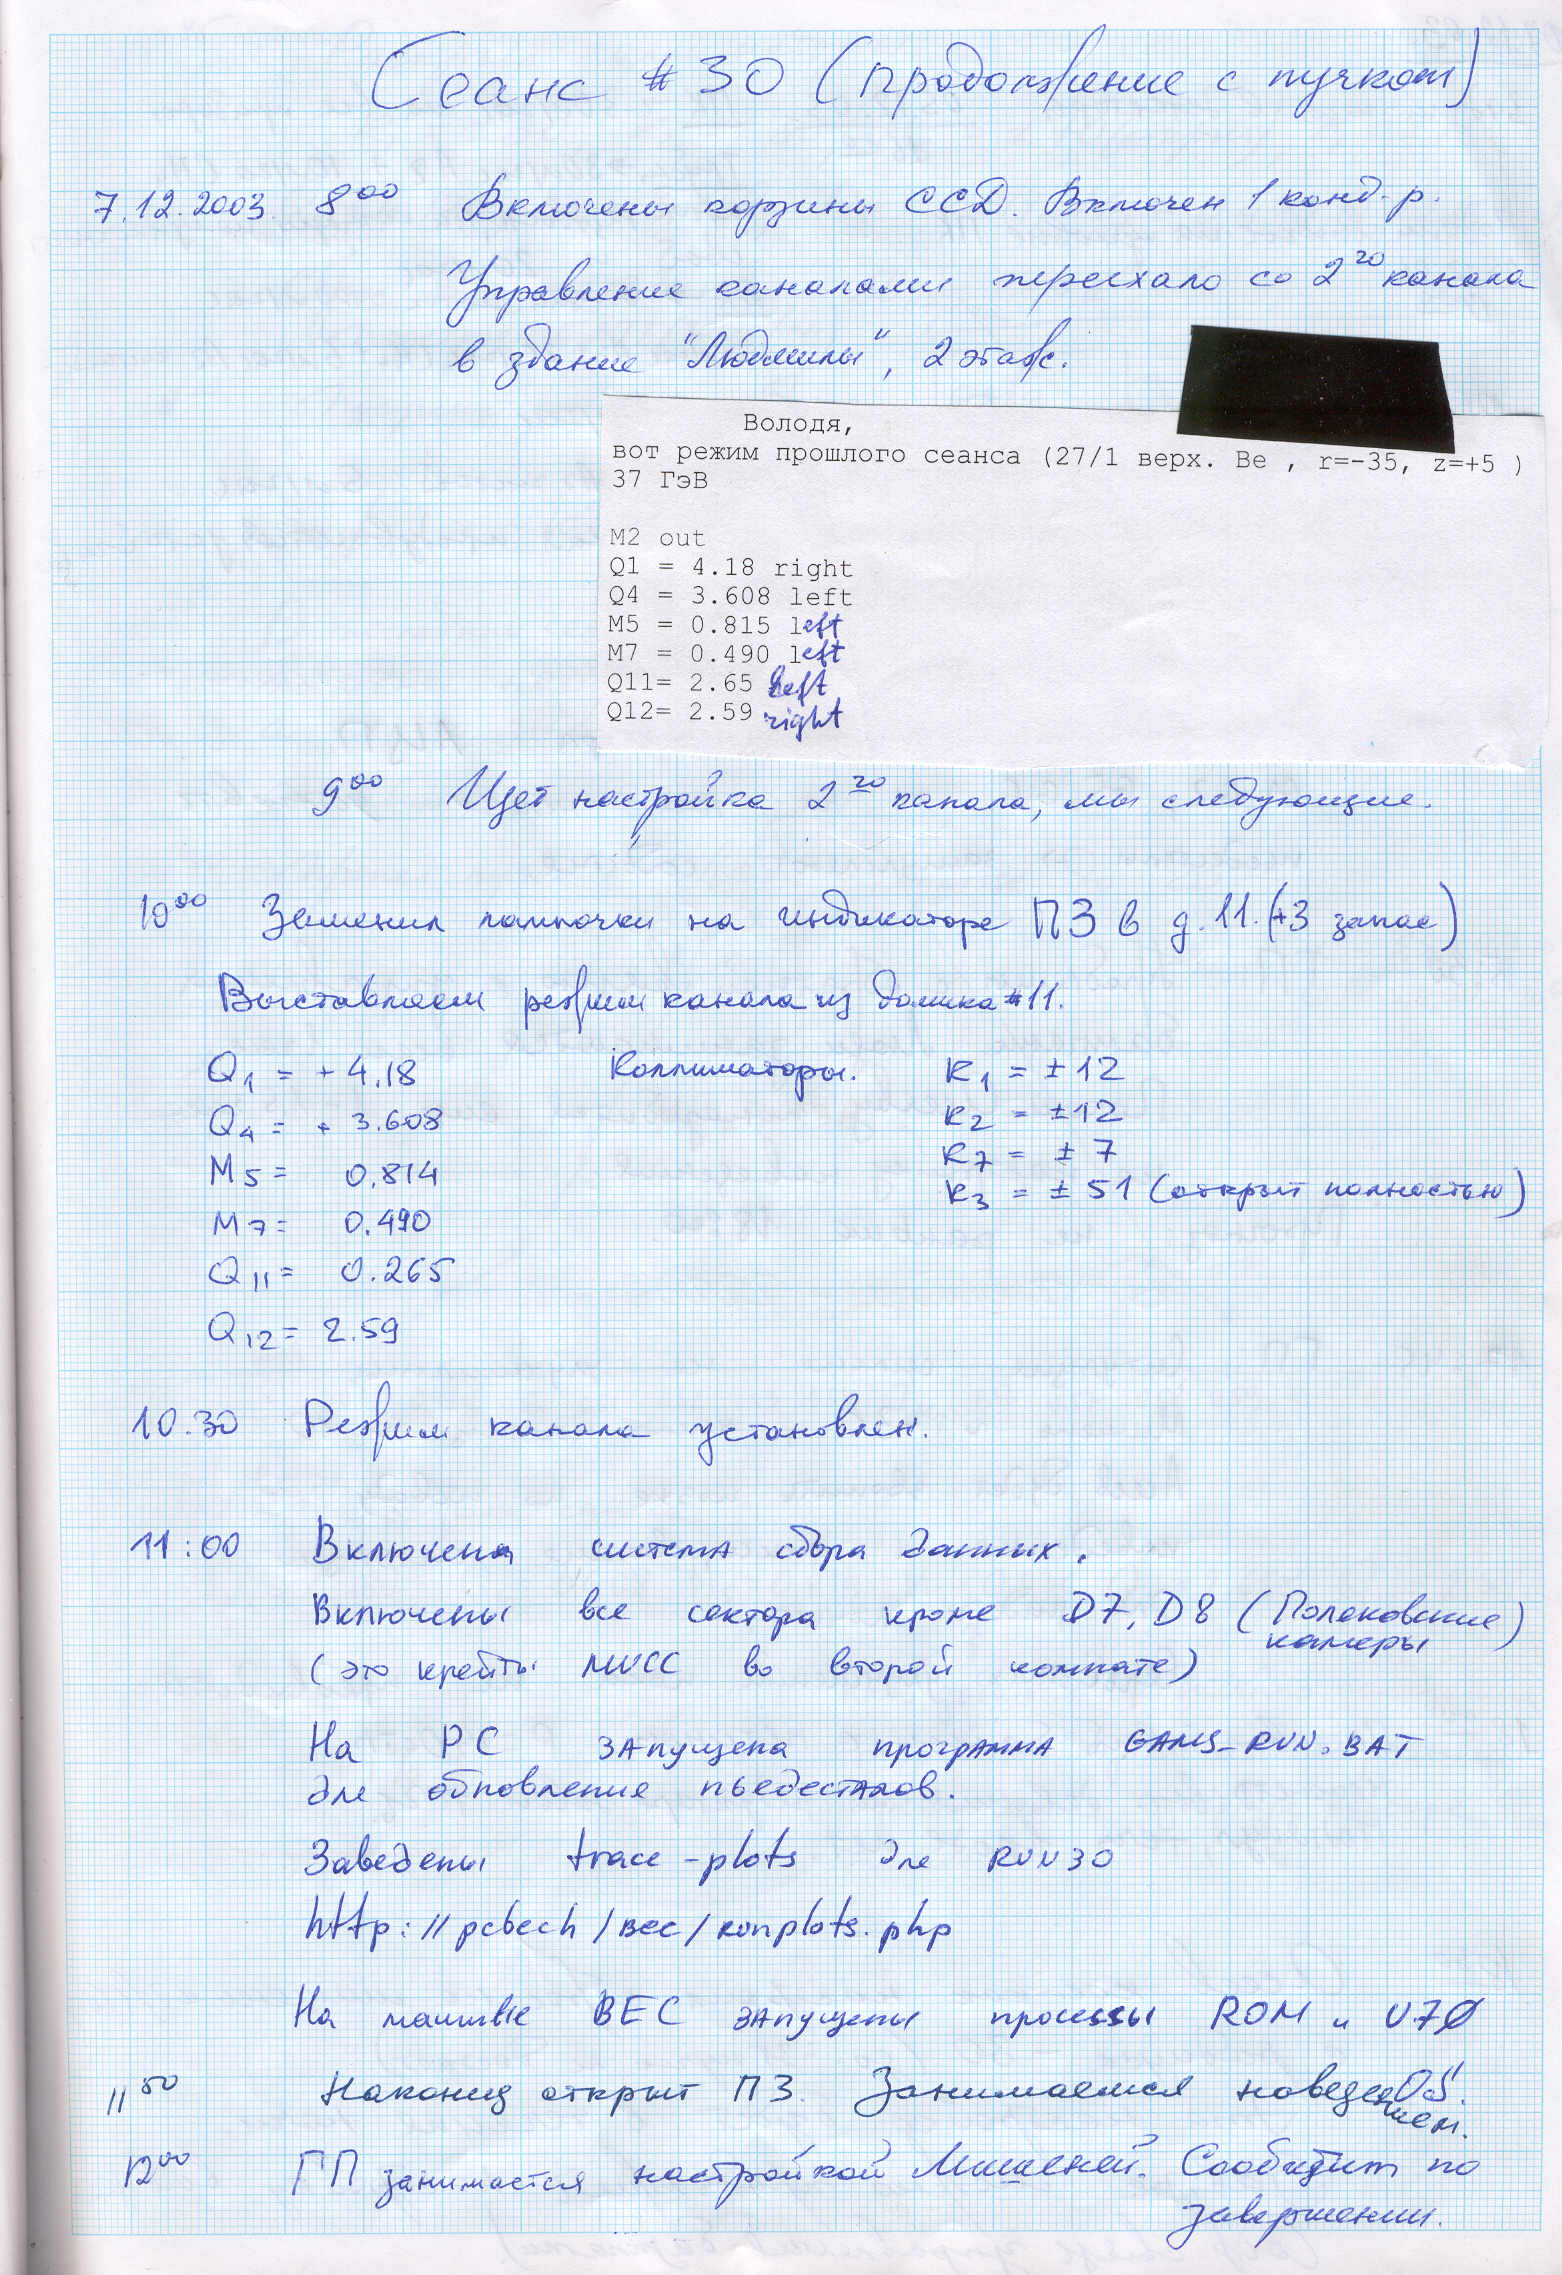 Сеанс #30 (продолжение с пучком)
7.12.2003. 8⁰⁰ Включены корзины CCD. Включен 1 конд-р.
Управление каналами переехало со 2го канала
в здание "Людмилы", 2 этаж.
Володя,
вот режим прошлого сеанса (27/1 верх. Be , r=-35, z=+5 )
37 ГэВ
M2 out
Q1 = 4.18 right
Q4 = 3.608 left
M5 = 0.815 left
M7 = 0.490 left
Q11= 2.65 left
Q12= 2.59 right
9⁰⁰ Идет настройка 2го канала, мы следующие.
10⁰⁰ Заменил лампочки на индикаторе ПЗ в д.11. (+3 запас)
Выставляем режим канала из домика #11.
Q₁ = + 4.18 Коллиматоры. K₁ = ±12
Q₄ = + 3.608 K₂ = ±12
M₅ = 0.814 K₇ = ± 7
M₇ = 0.490 K₃ = ± 51 (открыт полностью)
Q₁₁ = 0.265
Q₁₂ = 2.59
10.30 Режим канала установлен.
11:00 Включена система сбора данных.
Включены все сектора кроме D7, D8 (Поляковские камеры)
(это крейты МИСС во второй комнате)
На PC запущена программа GAMS_RUN.BAT
для обновления пьедесталов.
Заведены trace-plots для RUN30
http://pcbech/вес/runplots.php
На машине ВЕС запущены процессы ROM и U7Ø
11⁵⁰ Наконец открыт ПЗ. Занимаемся наведением.
12⁰⁰ ГП занимается настройкой Мишеней. Сообщит по
завершении.